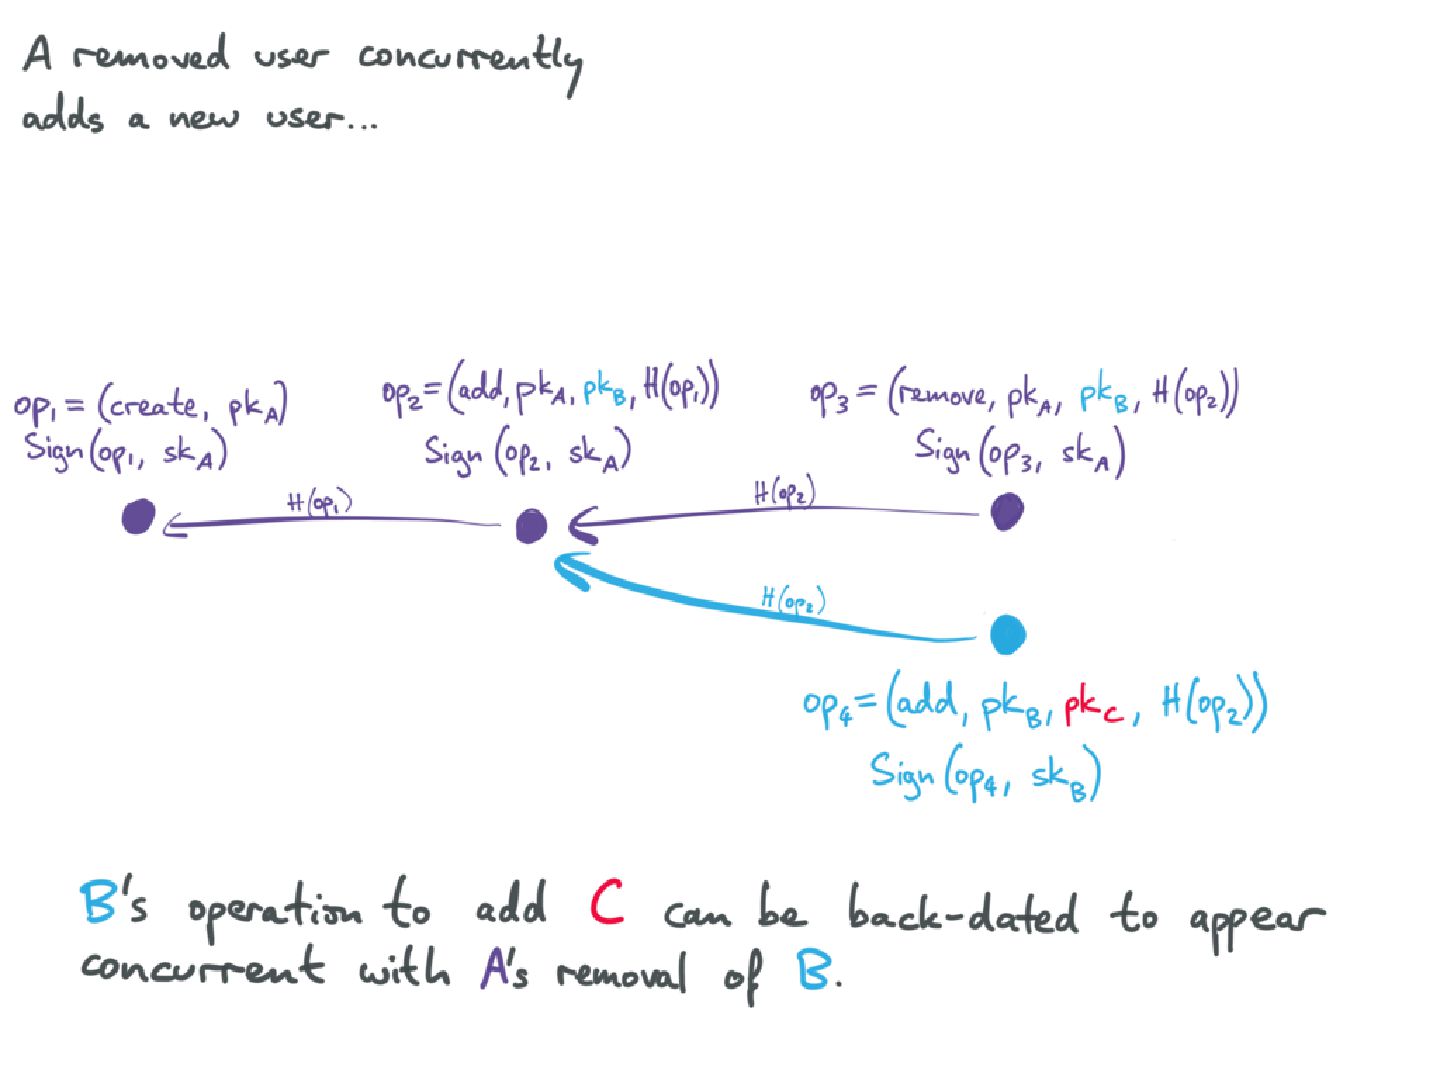 A removed user concurrently
adds a new user...
op₁ = (create, pk_A)
Sign(op₁, sk_A)
op₂ = (add, pk_A, pk_B, H(op₁))
Sign(op₂, sk_A)
op₃ = (remove, pk_A, pk_B, H(op₂))
Sign(op₃, sk_A)
H(op₁)
H(op₂)
H(op₂)
op₄ = (add, pk_B, pk_C, H(op₂))
Sign(op₄, sk_B)
B's operation to add C can be back-dated to appear
concurrent with A's removal of B.